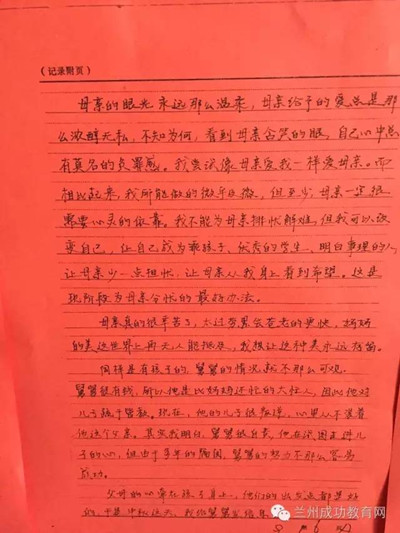 （记录附页）
母亲的眼光永远那么温柔，母亲给予的爱总是那
么浓醇无私，不知为何，看到母亲含笑的眼，自己心中总
有莫名的负罪感。我尝试像母亲爱我一样爱母亲。而
相比起来，我所能做的微乎其微。但至少，母亲一定很
需要心灵的依靠。我不能为母亲排忧解难，但我可以改
变自己，让自己成为乖孩子、优秀的学生、明白事理的人，
让母亲少一点担忧，让母亲从我身上看到希望。这是
现阶段为母亲分忧的最好办法。
母亲真的很辛苦了，太过劳累会苍老的更快，妈妈
的美这世界上再无人能抵及，我想让这种美永远存留。
同样是有孩子的，舅舅的情况就不那么可观。
舅舅很有钱，所以他是比妈妈还忙的大忙人，因此他对
儿子疏于管教。现在，他的儿子很叛逆，心里从不装着
他这个父亲。其实我明白，舅舅很自责，他在试图走进儿
子的心，但由于多年的隔阂，舅舅的努力不那么容易
成功。
父母的心牵在孩子身上，他们的出发点都是好
的，于是中秋这天，我给舅舅
兰州成功教育网